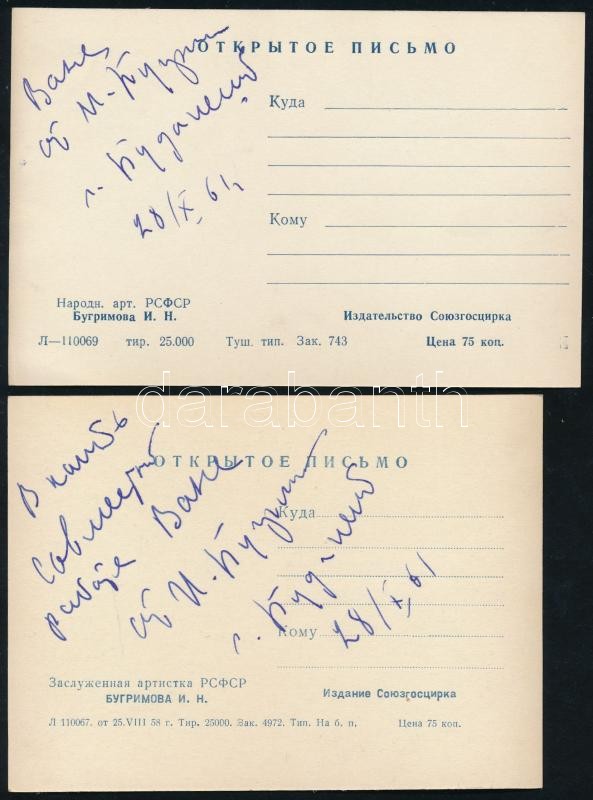 ОТКРЫТОЕ ПИСЬМО
Ване
от И. Бугрим
г. Будапешт
28/X 61 г.
Куда
Кому
Народн. арт. РСФСР
Бугримова И. Н.
Издательство Союзгосцирка
Л—110069 тир. 25.000 Туш. тип. Зак. 743 Цена 75 коп.
darabanth
ОТКРЫТОЕ ПИСЬМО
В память
совместной
работе Ване
от И. Бугрим
г. Будапешт
28/X 61
Куда
Кому
Заслуженная артистка РСФСР
БУГРИМОВА И. Н.
Издание Союзгосцирка
Л 110067. от 25.VIII 58 г. Тир. 25000. Зак. 4972. Тип. На б. п. Цена 75 коп.